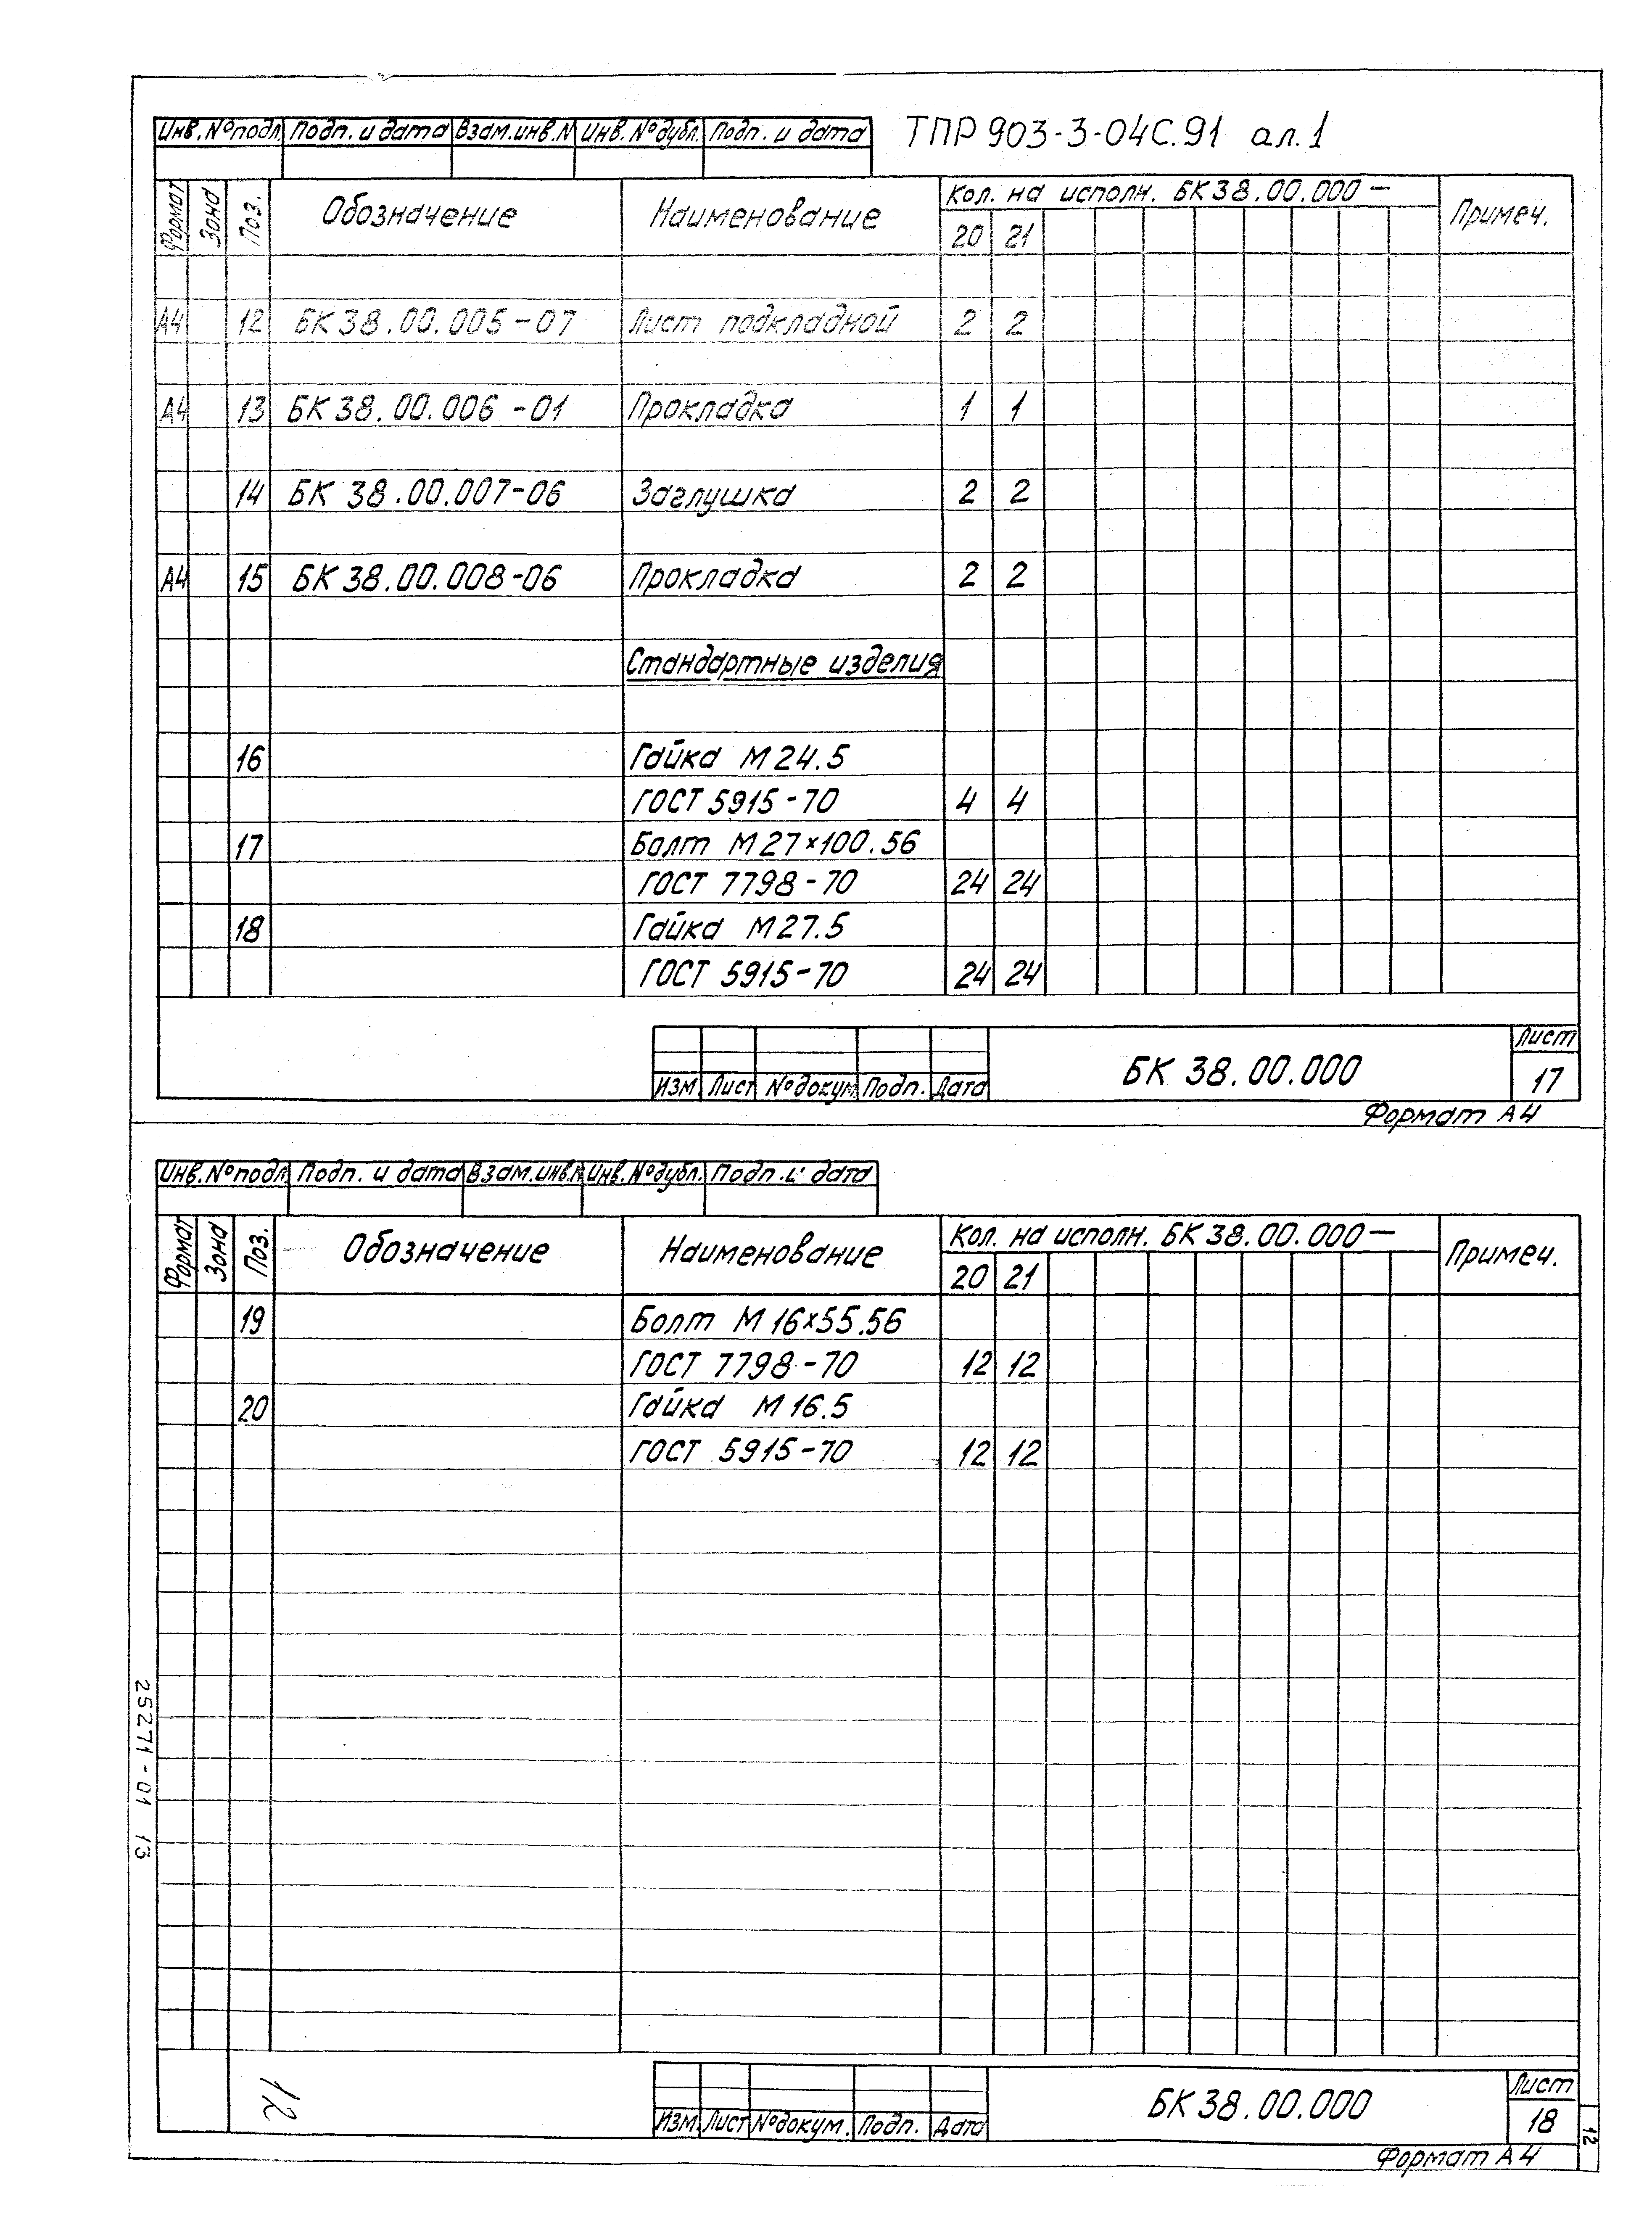 ТПР 903-3-04С.91 ал.1
Инв.№подл. Подп. и дата Взам.инв.N Инв.№дубл. Подп. и дата
Формат Зона Поз. Обозначение Наименование Кол. на исполн. БК38.00.000— Примеч.
20 21
А4 12 БК38.00.005-07 Лист подкладной 2 2
А4 13 БК38.00.006-01 Прокладка 1 1
14 БК 38.00.007-06 Заглушка 2 2
А4 15 БК38.00.008-06 Прокладка 2 2
Стандартные изделия
16 Гайка М24.5
ГОСТ 5915-70 4 4
17 Болт М27×100.56
ГОСТ 7798-70 24 24
18 Гайка М27.5
ГОСТ 5915-70 24 24
Изм. Лист №докум. Подп. Дата БК 38.00.000 Лист
17
Формат А4
Инв.№подл. Подп. и дата Взам.инв.№ Инв.№дубл. Подп. и дата
Формат Зона Поз. Обозначение Наименование Кол. на исполн. БК38.00.000— Примеч.
20 21
19 Болт М16×55.56
ГОСТ 7798-70 12 12
20 Гайка М16.5
ГОСТ 5915-70 12 12
25271-01 13
12
Изм. Лист №докум. Подп. Дата БК38.00.000 Лист
18
12
Формат А4